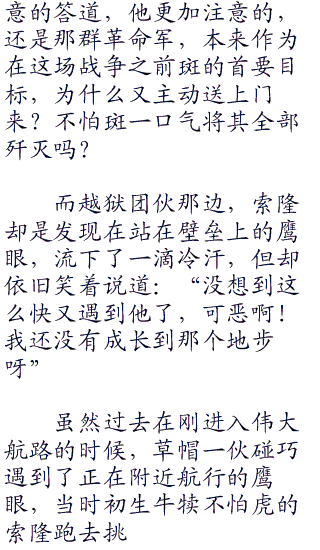 意的答道，他更加注意的，
还是那群革命军，本来作为
在这场战争之前斑的首要目
标，为什么又主动送上门
来？不怕斑一口气将其全部
歼灭吗？
而越狱团伙那边，索隆
却是发现在站在壁垒上的鹰
眼，流下了一滴冷汗，但却
依旧笑着说道：“没想到这
么快又遇到他了，可恶啊！
我还没有成长到那个地步
呀”
虽然过去在刚进入伟大
航路的时候，草帽一伙碰巧
遇到了正在附近航行的鹰
眼，当时初生牛犊不怕虎的
索隆跑去挑